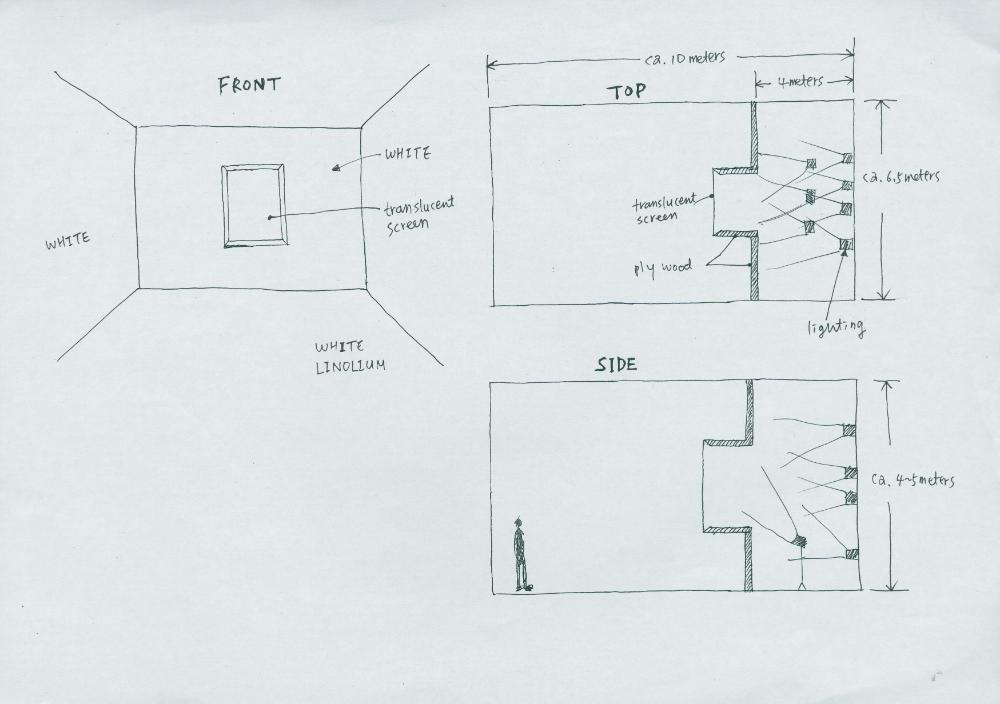 FRONT
WHITE
translucent
screen
WHITE
WHITE
LINOLIUM
ca. 10 meters
4 meters
TOP
ca. 6,5 meters
translucent
screen
ply wood
lighting
SIDE
ca. 4~5 meters